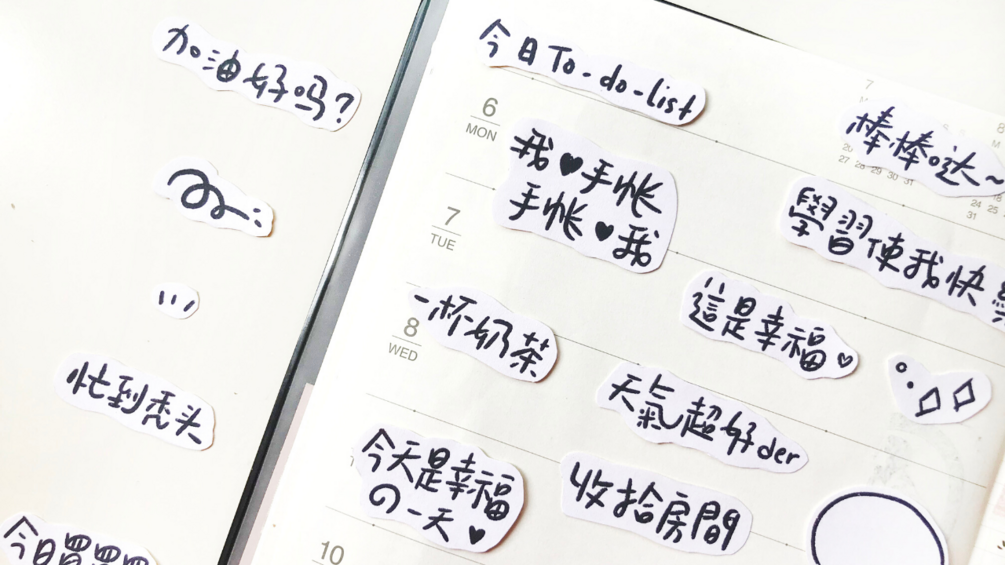 加油好吗?
忙到秃头
今日買買買
今日To-do-list
棒棒哒~
6
MON
我♥手帐
手帐♥我
學習使我快
7
TUE
這是幸福♡
一杯奶茶
8
WED
天氣超好der
今天是幸福
の一天♥
收拾房間
10
7
M
20
27 28 29 30 31
8
M
24 25
31